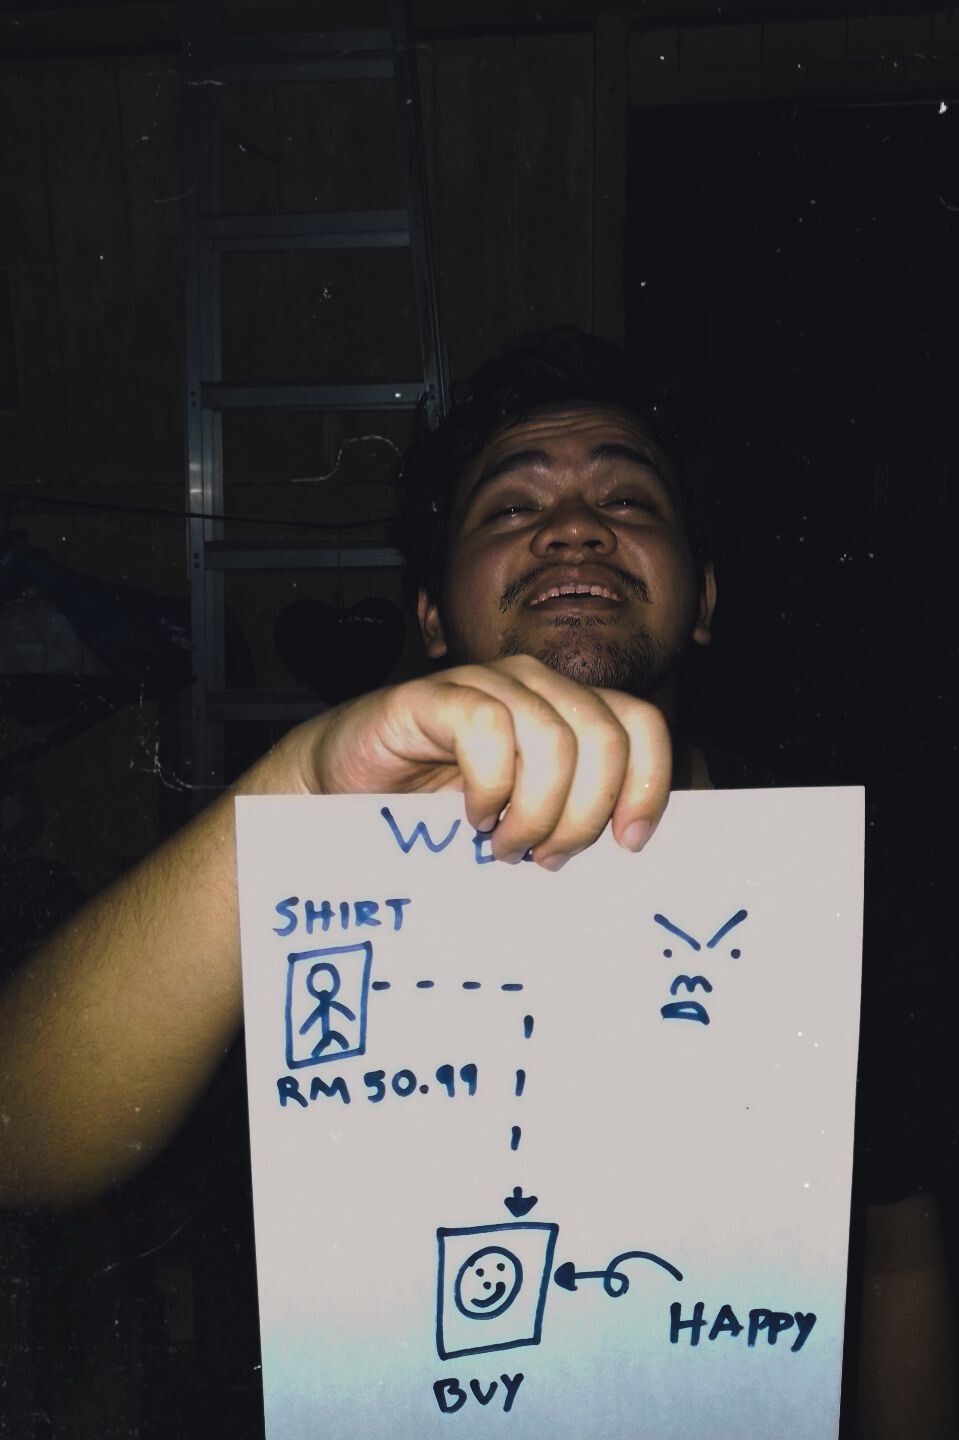 SHIRT
RM 50.99
HAPPY
BUY